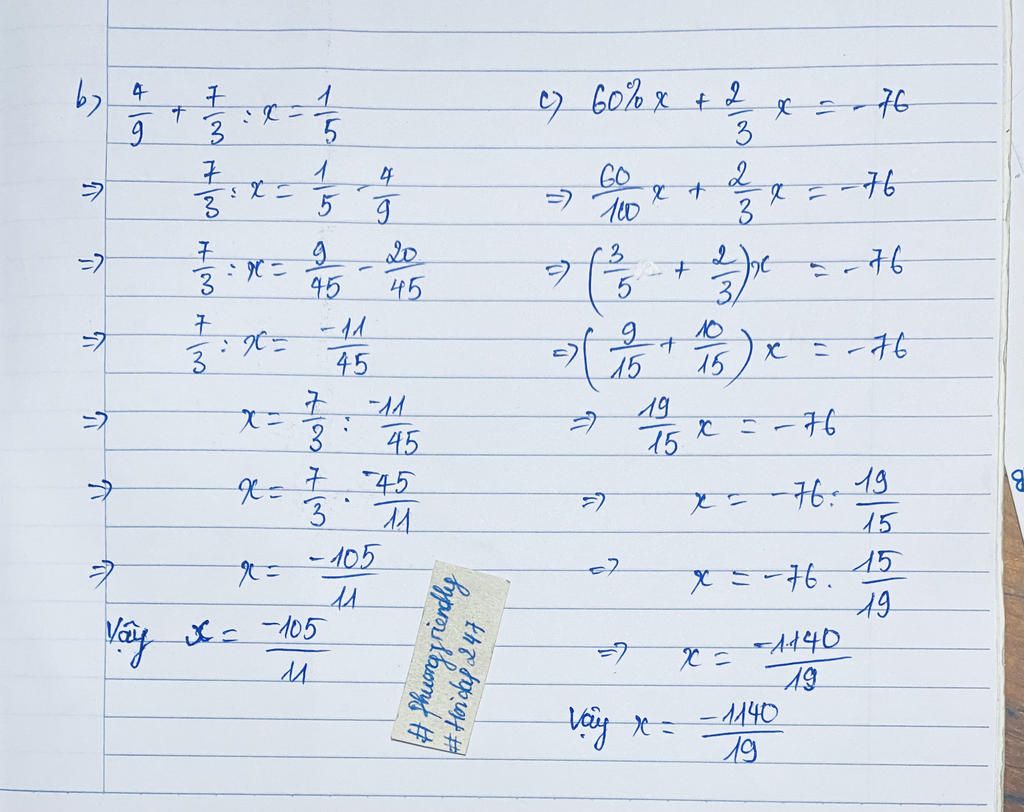 b) 4/9 + 7/3 : x = 1/5
⇒ 7/3 : x = 1/5 - 4/9
⇒ 7/3 : x = 9/45 - 20/45
⇒ 7/3 : x = -11/45
⇒ x = 7/3 : -11/45
⇒ x = 7/3 . -45/11
⇒ x = -105/11
Vậy x = -105/11
c) 60% x + 2/3 x = -76
⇒ 60/100 x + 2/3 x = -76
⇒ (3/5 + 2/3) x = -76
⇒ (9/15 + 10/15) x = -76
⇒ 19/15 x = -76
⇒ x = -76 : 19/15
⇒ x = -76 . 15/19
⇒ x = -1140/19
Vậy x = -1140/19
# Phuongfriendly
# Hoidap247